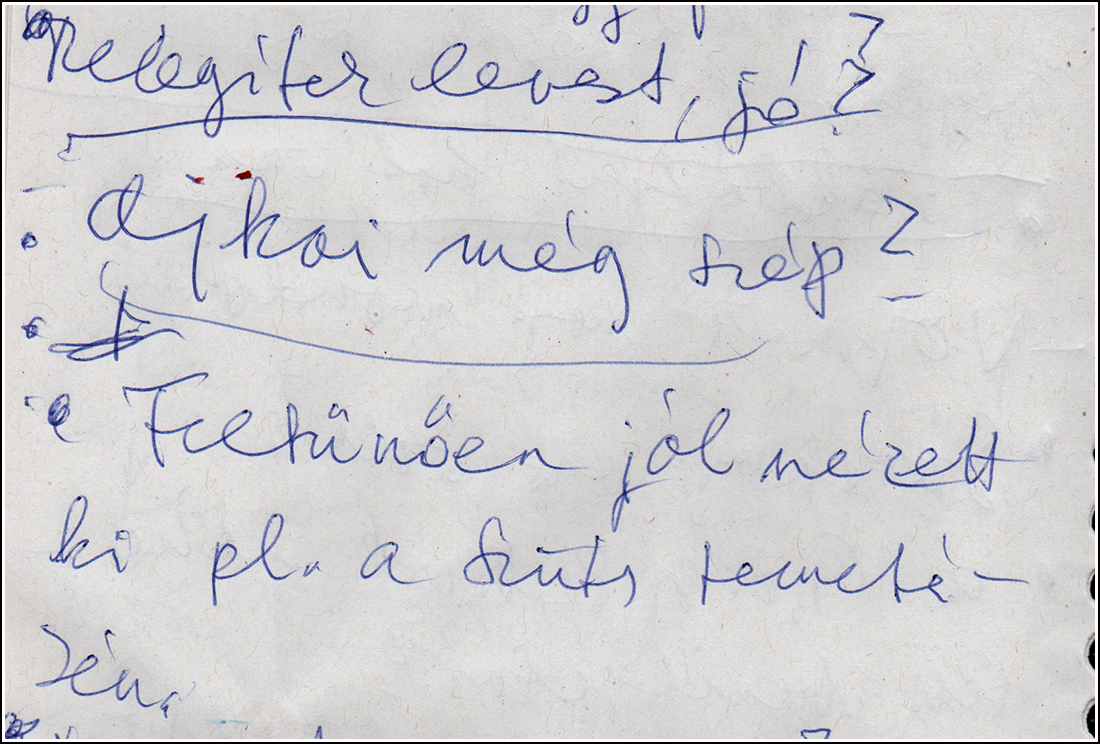 levest, jó?
Ajkai még szép?
Feltünően jól nézett
ki pl. a Szűts temeté-
sén.